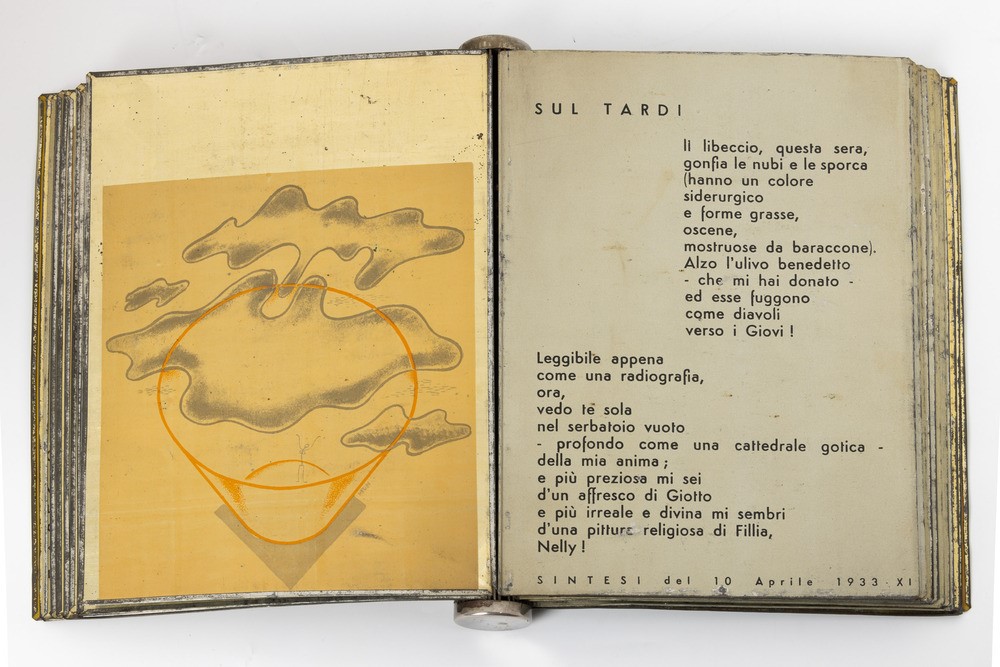 SUL TARDI
Il libeccio, questa sera,
gonfia le nubi e le sporca
(hanno un colore
siderurgico
e forme grasse,
oscene,
mostruose da baraccone).
Alzo l'ulivo benedetto
- che mi hai donato -
ed esse fuggono
come diavoli
verso i Giovi !
Leggibile appena
come una radiografia,
ora,
vedo te sola
nel serbatoio vuoto
- profondo come una cattedrale gotica -
della mia anima ;
e più preziosa mi sei
d'un affresco di Giotto
e più irreale e divina mi sembri
d'una pittura religiosa di Fillia,
Nelly !
SINTESI del 10 Aprile 1933 - XI